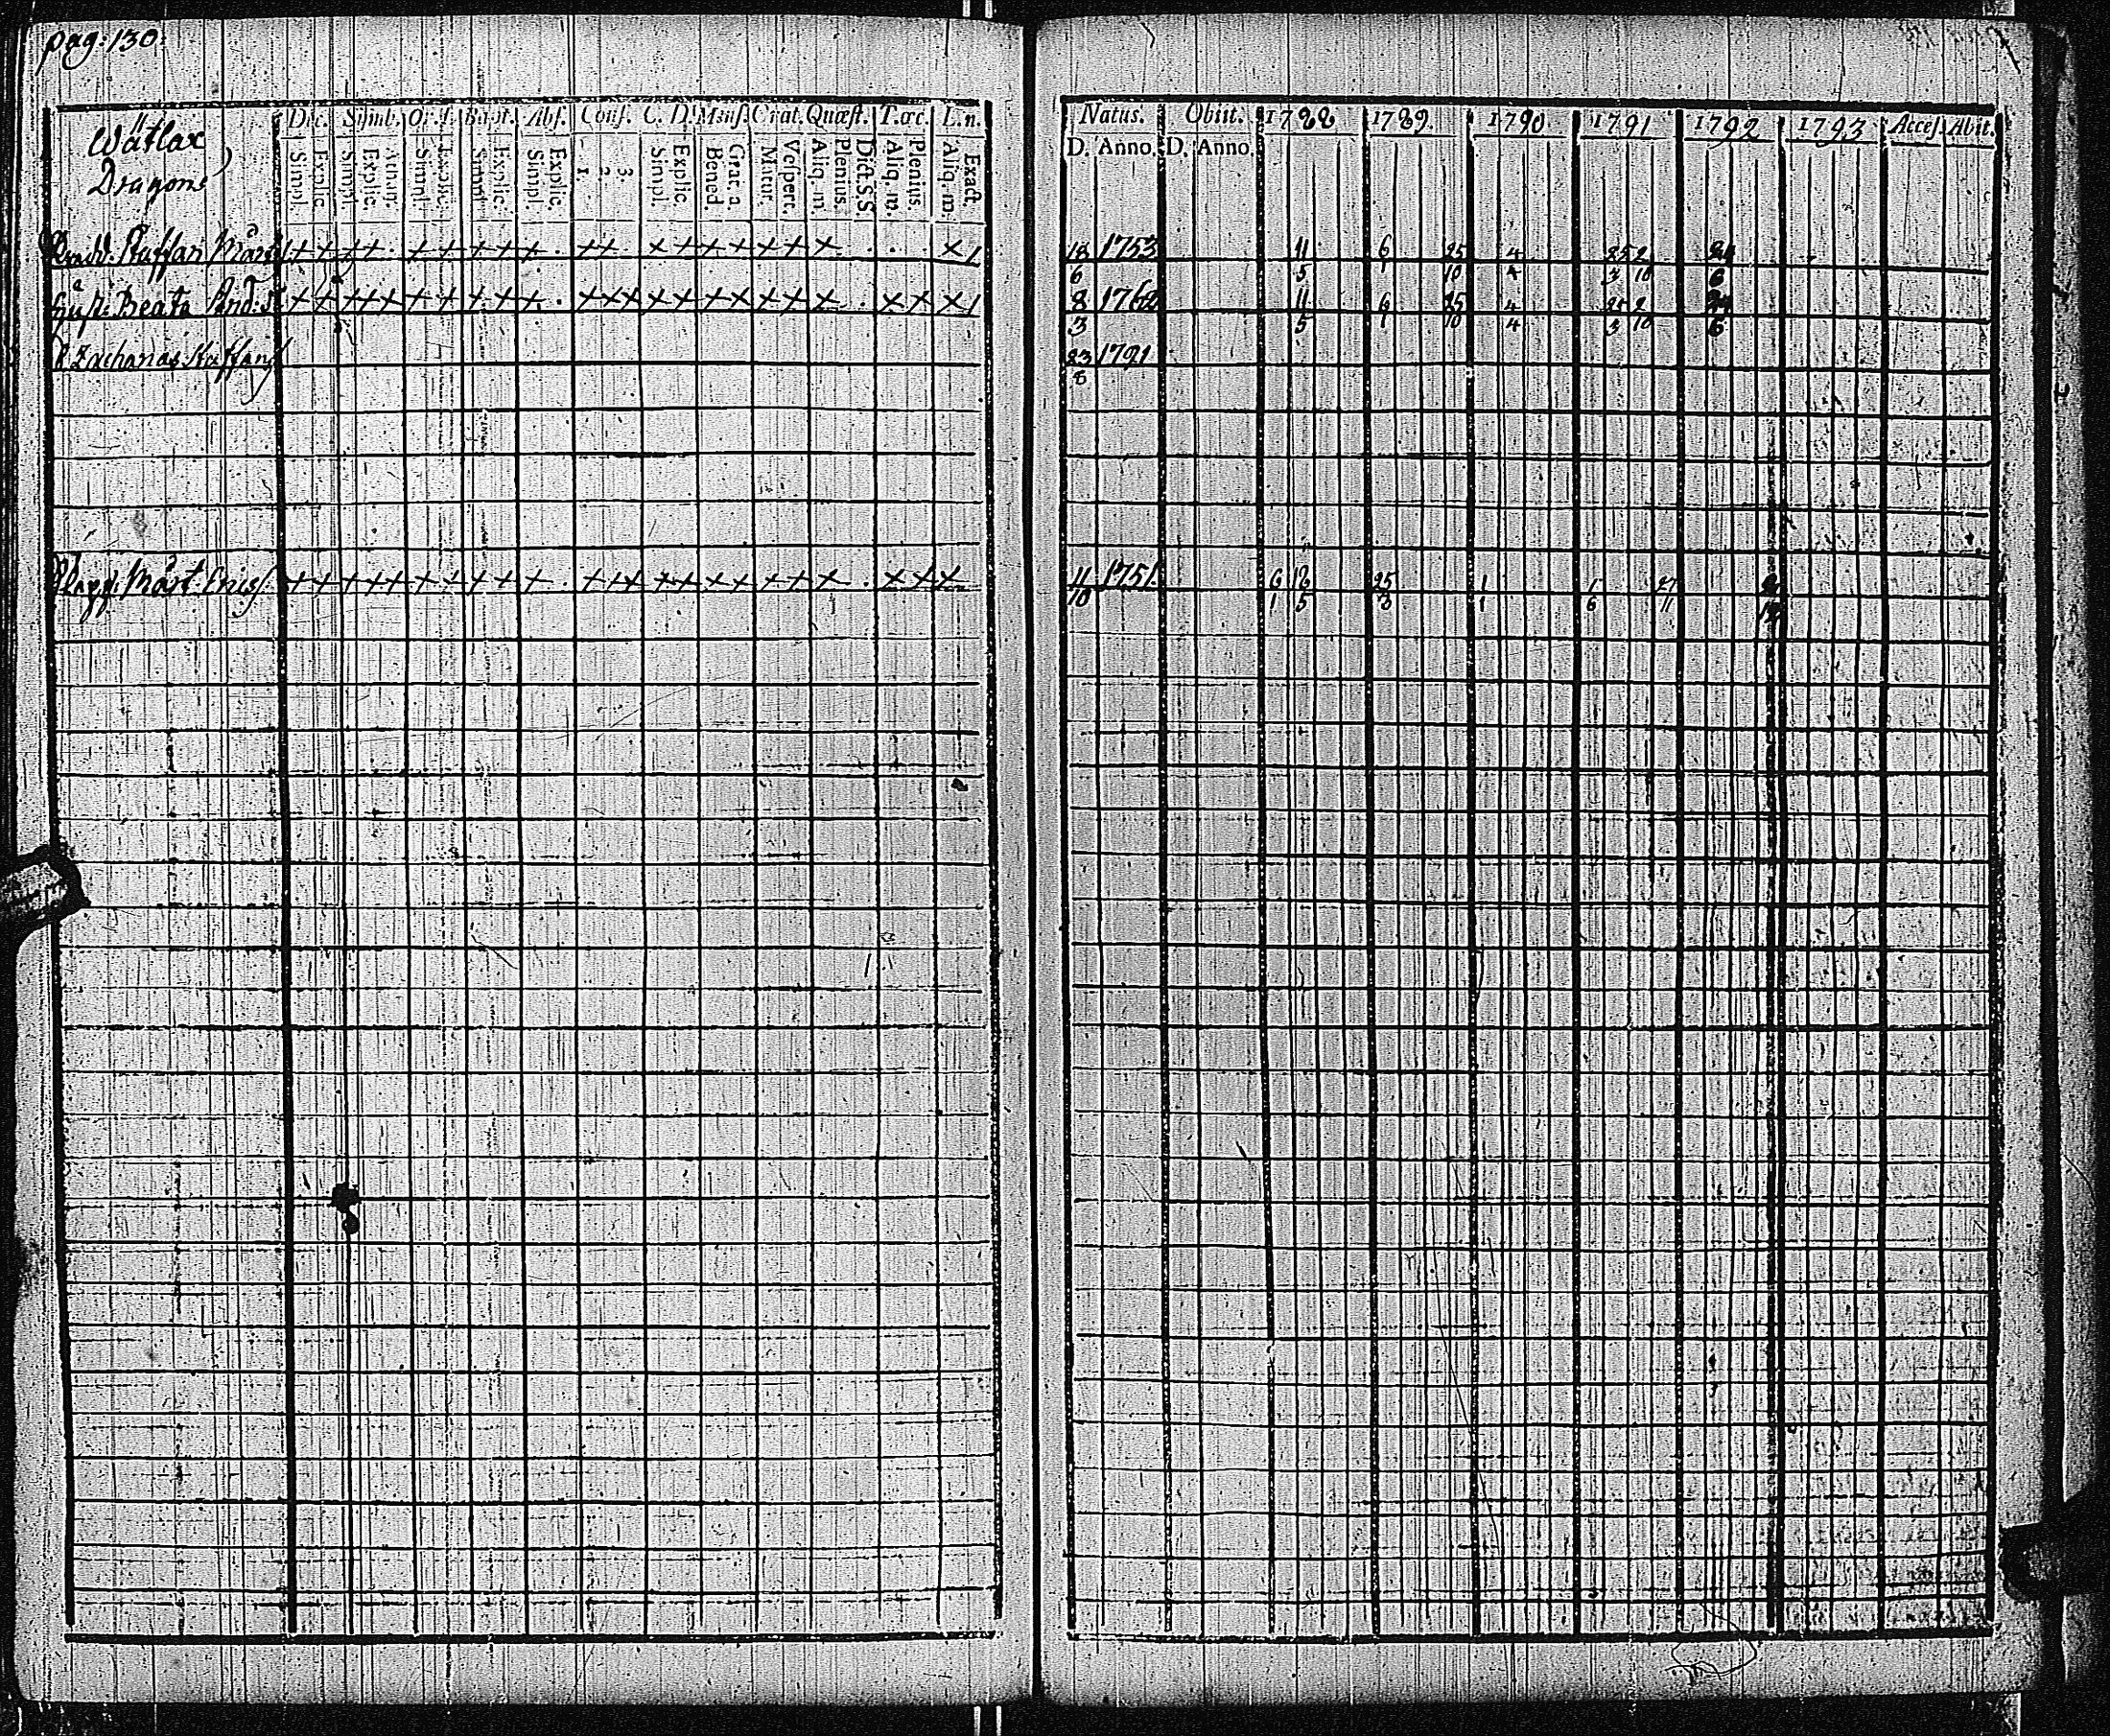 pag: 130
Wätlax
Dragone
Dec. Symb. Or. Bapt. Abs. Conf. C. D. Mens. Orat. Quæst. T.œc. L.n.
Simpl. Explic. Simpl. Explic. Athan. Simpl. Explic. Simpl. Explic. Simpl. Explic. 1. 2. 3. Simpl. Explic. Bened. Grat. a. Matut. Vespert. Aliq. m. Plenius. Dict. S.S. Aliq. m. Plenius. Aliq. m. Exact.
Natus. Obiit. 1788 1789. 1790 1791 1792 1793 Acces. Abiit.
D. Anno. D. Anno.
Staffan Mårt 18 1753 11 6 25 4 25 2 24
6 5 1 10 4 3 10 6
hust: Beata And: 8 1762 11 6 25 4 25 2 24
3 5 1 10 4 3 10 6
Zacharias Staffans 23 1791
8
Mårt Erics 11 1751 6 12 25 1 1 27
10 1 5 3 1 6 11